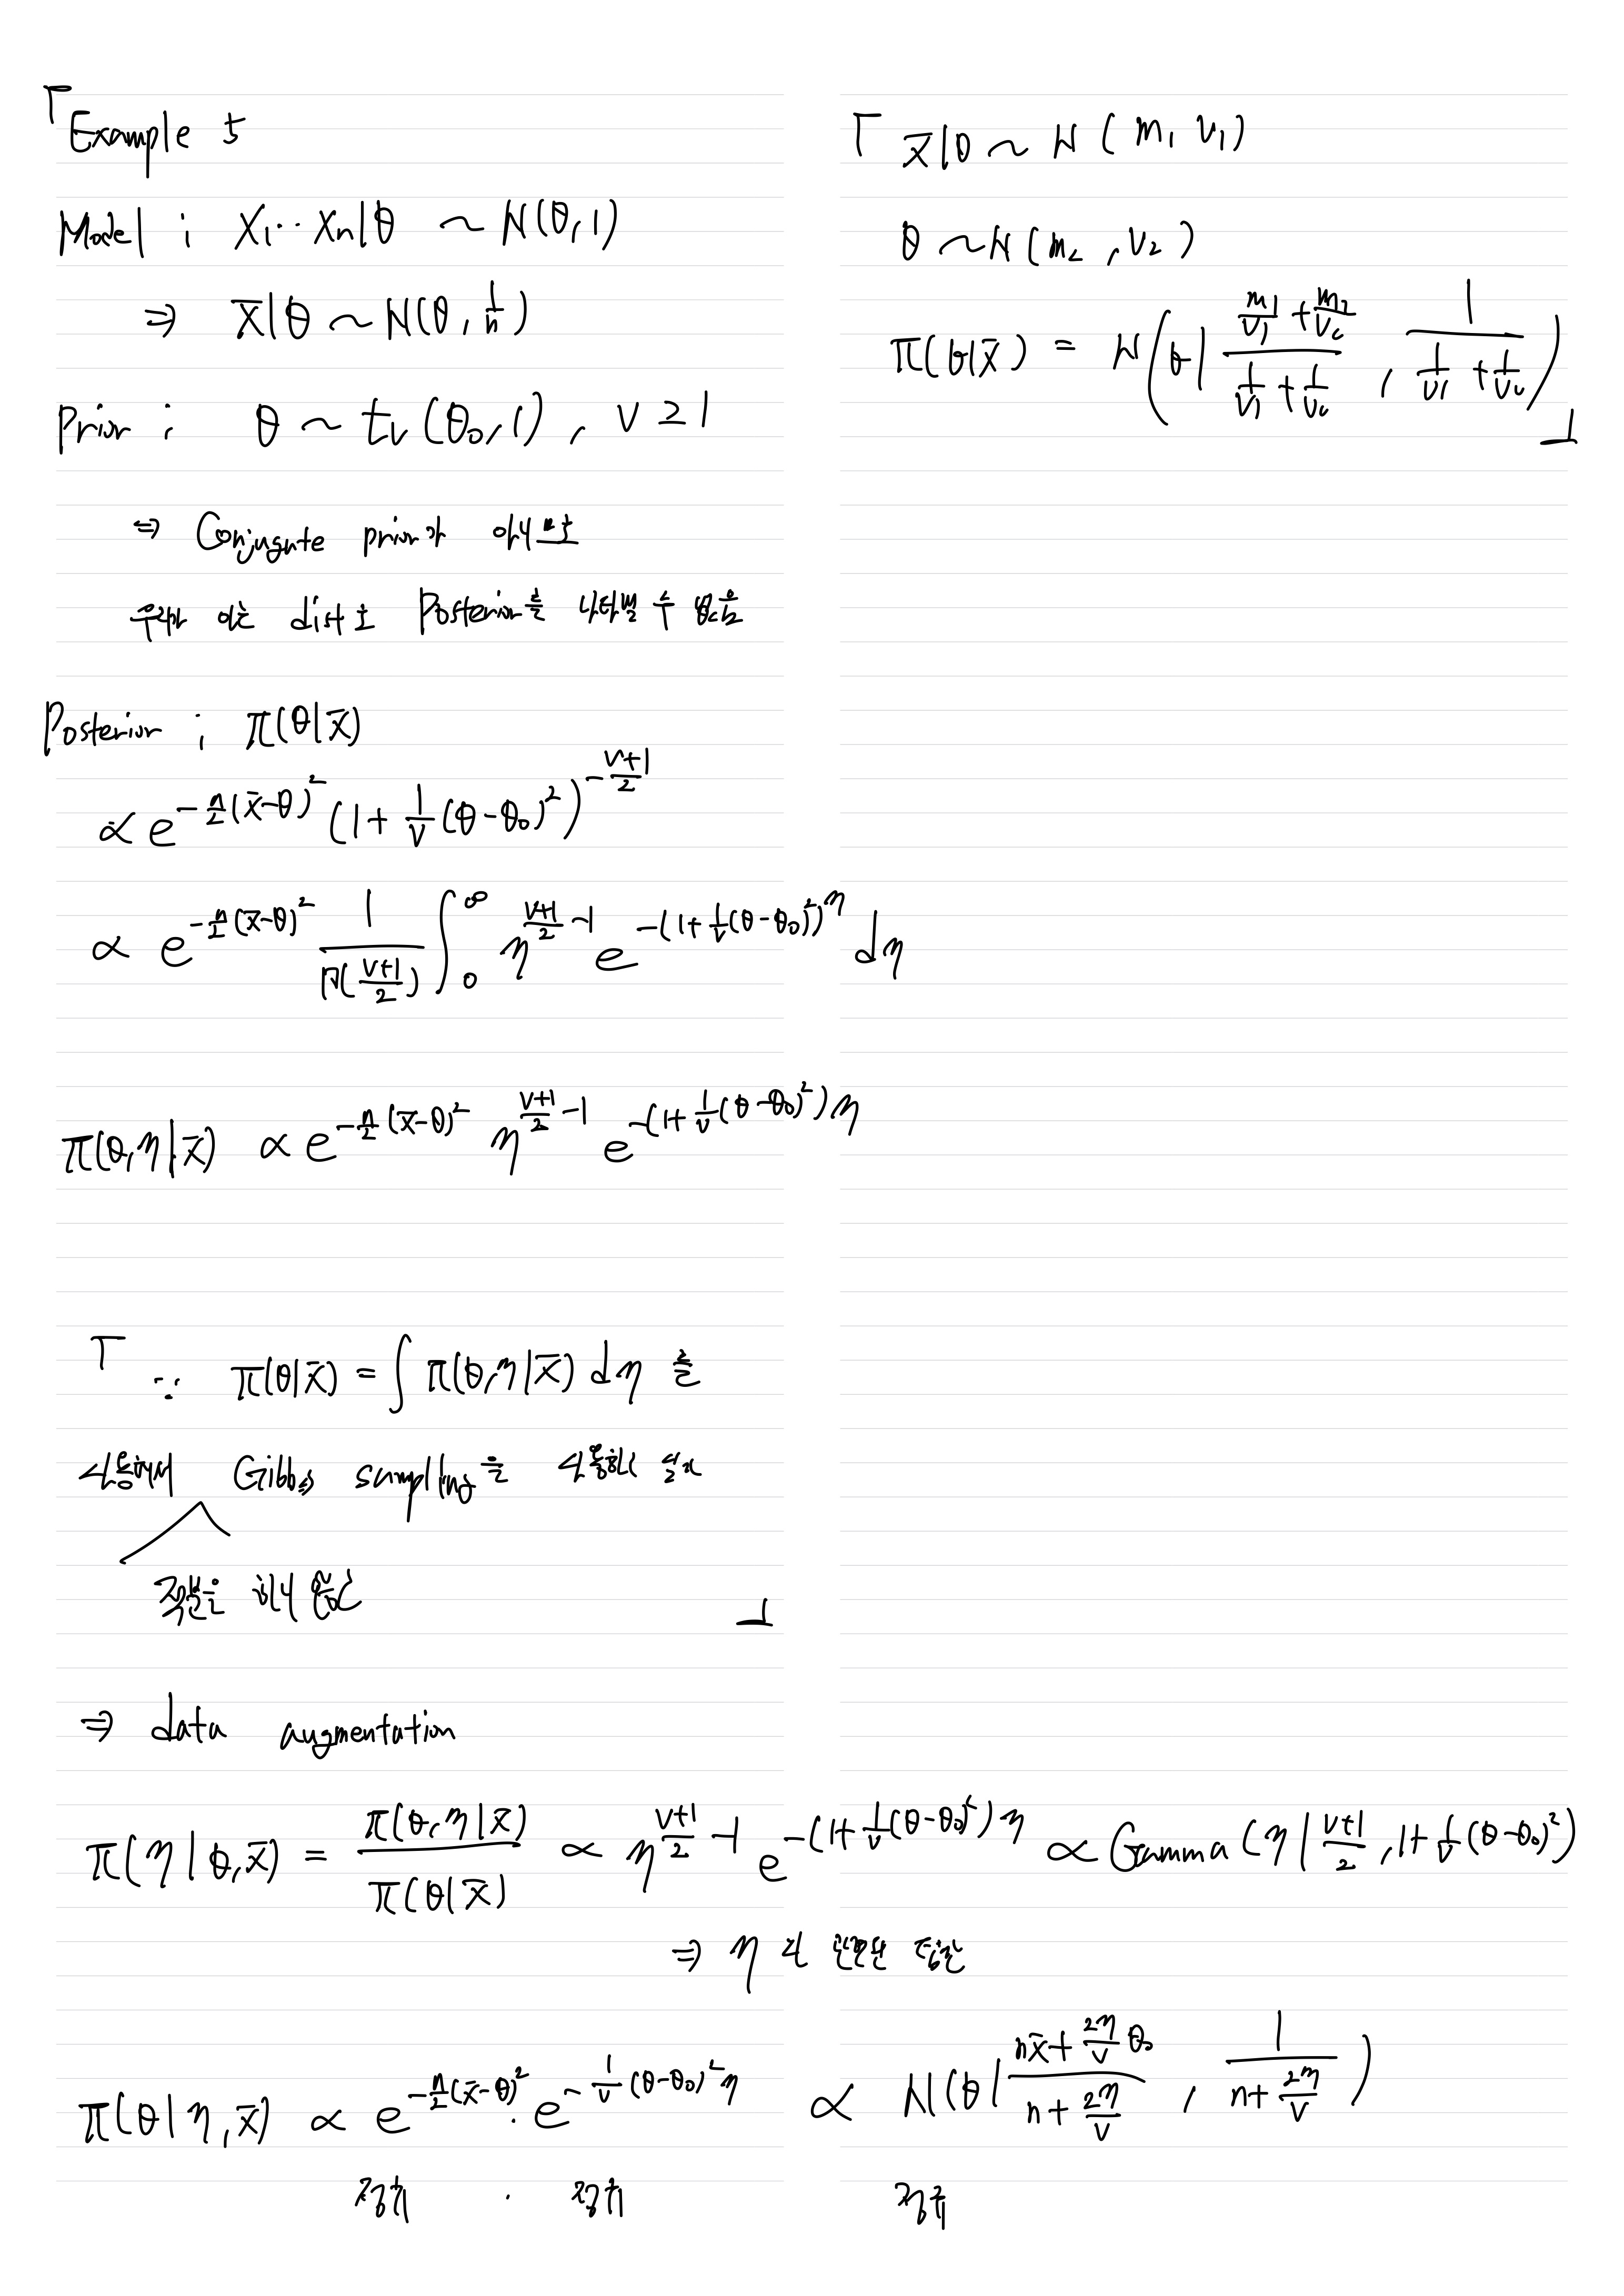 Example 5
Model ; X₁⋯Xₙ|θ ~ N(θ,1)
⇒ x̄|θ ~ N(θ, 1/n)
Prior ; θ ~ t_ν(θ₀,1), ν ≥ 1
⇒ Conjugate prior가 아니므로
우리가 아는 dist로 Posterior를 나타낼 수 없음
Posterior ; π(θ|x̄)
∝ e^{-n/2(x̄-θ)²} (1 + 1/ν(θ-θ₀)²)^{-(ν+1)/2}
∝ e^{-n/2(x̄-θ)²} 1/Γ((ν+1)/2) ∫₀^∞ η^{(ν+1)/2 -1} e^{-(1+1/ν(θ-θ₀)²)η} dη
π(θ,η|x̄) ∝ e^{-n/2(x̄-θ)²} η^{(ν+1)/2 -1} e^{-(1+1/ν(θ-θ₀)²)η}
∵ π(θ|x̄) = ∫ π(θ,η|x̄) dη 를
사용해서 Gibbs sampling을 사용하고 싶지
적분은 하지 않는다
⇒ data augmentation
π(η|θ,x̄) = π(θ,η|x̄) / π(θ|x̄) ∝ η^{(ν+1)/2 -1} e^{-(1+1/ν(θ-θ₀)²)η} ∝ Gamma(η | (ν+1)/2, 1+1/ν(θ-θ₀)²)
⇒ η
π(θ|η,x̄) ∝ e^{-n/2(x̄-θ)²} · e^{-1/ν(θ-θ₀)²η} ∝ N(θ | (nx̄ + 2η/ν θ₀)/(n + 2η/ν), 1/(n + 2η/ν))
정규 · 정규 정규
x̄|θ ~ N(m₁ v₁)
θ ~ N(m₂, v₂)
π(θ|x̄) = N(θ | (m₁/v₁ + m₂/v₂)/(1/v₁ + 1/v₂), 1/(1/v₁ + 1/v₂))